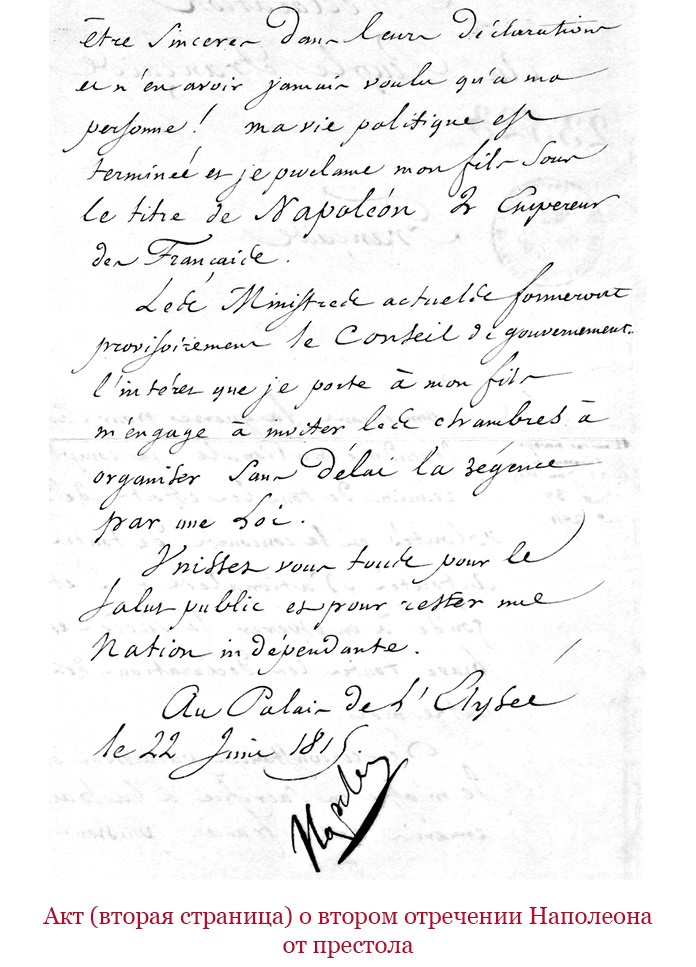 être sinceres dans leurs déclarations
et n'en avoir jamais voulu qu'a ma
personne! ma vie politique est
terminée et je proclame mon fils sous
le titre de Napoléon 2 Empereur
des Français.
Les Ministres actuels formeront
provisoirement le Conseil de gouvernement.
l'intéret que je porte à mon fils
m'engage à inviter les chambres à
organiser sans délai la régence
par une Loi.
Unissez vous tous pour le
salut public et pour rester une
Nation indépendante.
Au Palais de L'Elysée
le 22 Juin 1815.
Napoléon
Акт (вторая страница) о втором отречении Наполеона
от престола